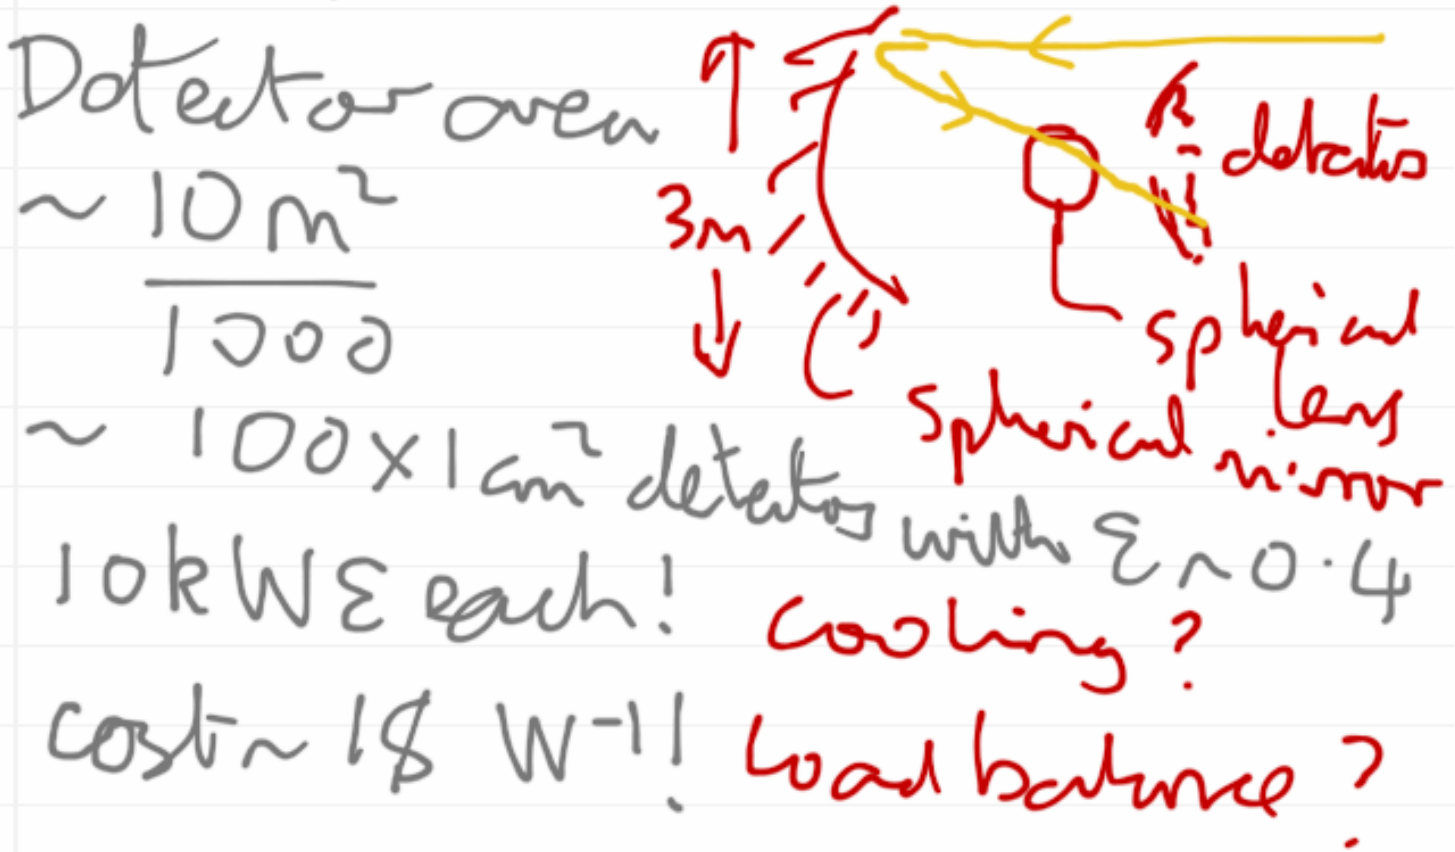 Detector area
~ 10 m²
1000
~ 100 x 1 cm² detectors with ε ~ 0.4
10kW ε each!
Cost ~ 1$ W⁻¹!
3m
detectors
spherical
lens
spherical mirror
Cooling?
Load balance?